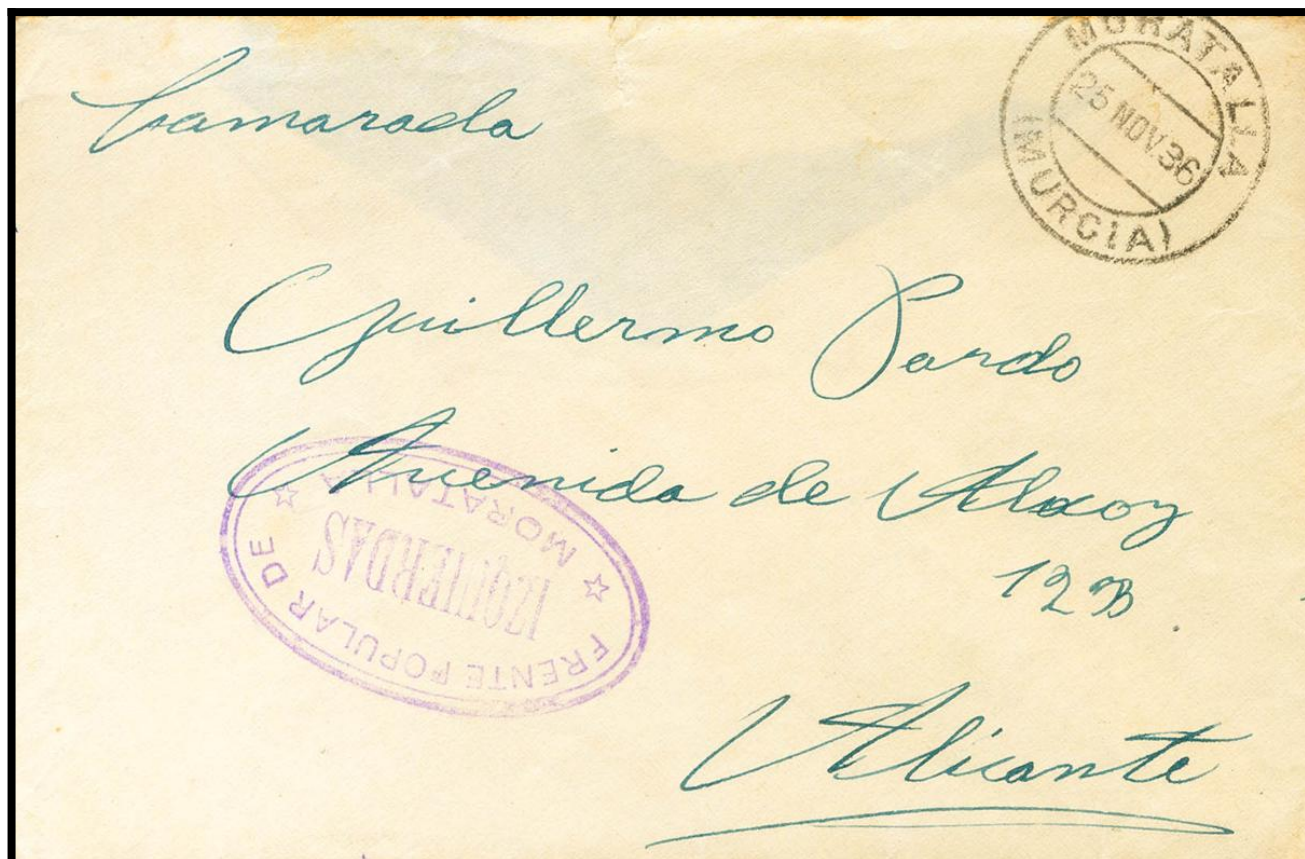 MORATALLA
25 NOV. 36
(MURCIA)
Camarada
Guillermo Pardo
Avenida de Alcoy
12 B
Alicante
FRENTE POPULAR DE
IZQUIERDAS
☆ MORATALLA ☆